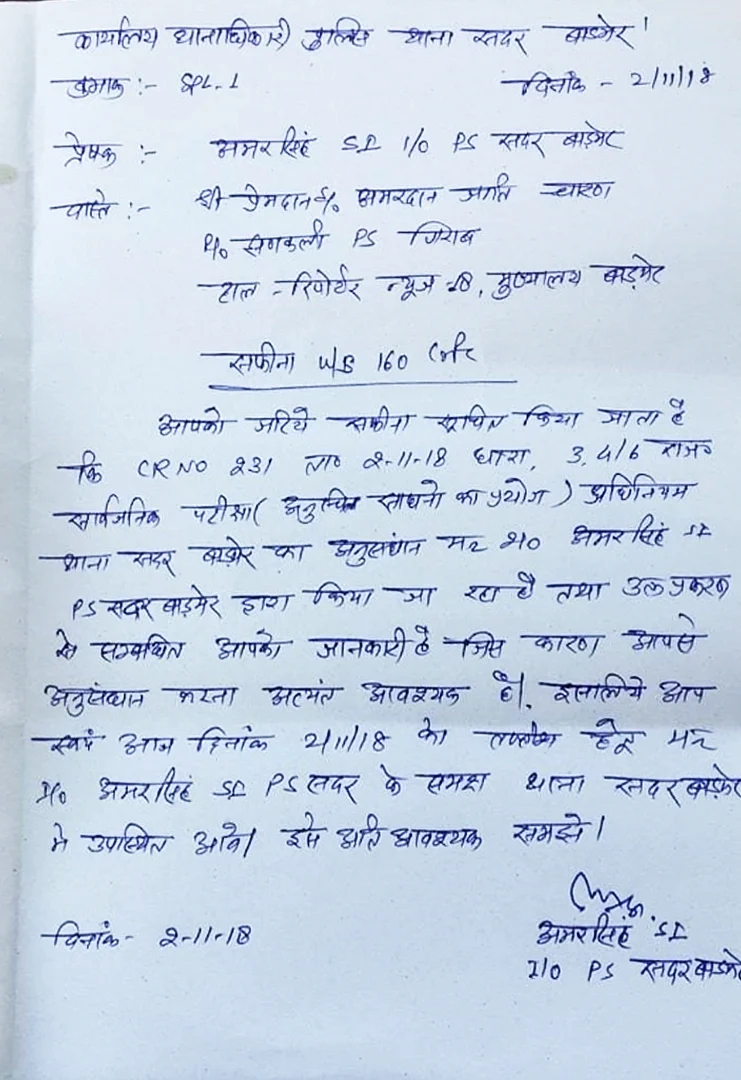 कार्यालय थानाधिकारी पुलिस थाना सदर बाडमेर।
क्रमांक :- SPL-1 दिनांक - 2/11/18
प्रेषक :- अमरसिंह SI I/O PS सदर बाड़मेर
वास्ते :- श्री प्रेमदान S/o अमरदान जाति चारण
R/o सणकली PS गिराब
हाल - रिपोर्टर न्यूज 18, मुख्यालय बाड़मेर
सफीना U/S 160 CrPC
आपको जरिये सफीना सूचित किया जाता है
कि CR NO 231 ता० 2-11-18 धारा, 3, 4/6 राज०
सार्वजनिक परीक्षा ( अनुचित साधनो का प्रयोग ) अधिनियम
थाना सदर बाड़मेर का अनुसंधान मन I/O अमरसिंह SI
PS सदर बाड़मेर द्वारा किया जा रहा है तथा उक्त प्रकरण
से सम्बंधित आपको जानकारी है जिस कारण आपसे
अनुसंधान करना अत्यंत आवश्यक है।, इसलिये आप
स्वयं आज दिनांक 2/11/18 को हेतू मन
I/O अमरसिंह SI PS सदर के समक्ष थाना सदर बाड़मेर
मे उपस्थित आवे। इसे अति आवश्यक समझे।
दिनांक- 2-11-18
अमरसिंह SI
I/O PS सदर बाडमेर